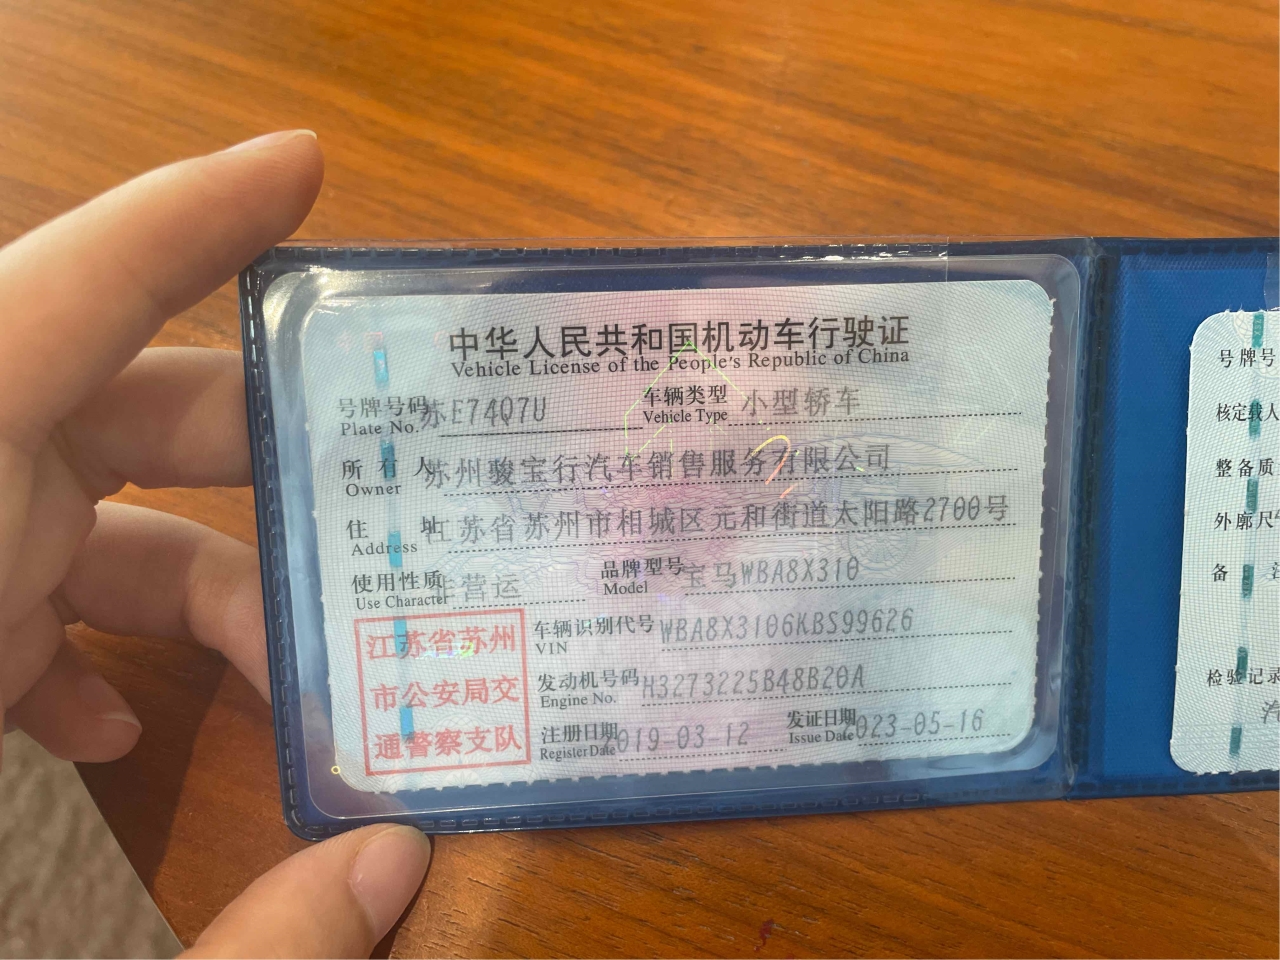 中华人民共和国机动车行驶证
Vehicle License of the People's Republic of China
号牌号码 苏E74Q7U 车辆类型 小型轿车
Plate No. Vehicle Type
所有人 苏州骏宝行汽车销售服务有限公司
Owner
住址 江苏省苏州市相城区元和街道太阳路2700号
Address
使用性质 非营运 品牌型号 宝马WBA8X310
Use Character Model
江苏省苏州
市公安局交
通警察支队
车辆识别代号 WBA8X3106KBS99626
VIN
发动机号码 H3273225B48B20A
Engine No.
注册日期 019-03-12 发证日期 023-05-16
Register Date Issue Date
号牌号
核定载人
整备质
外廓尺
备
检验记录